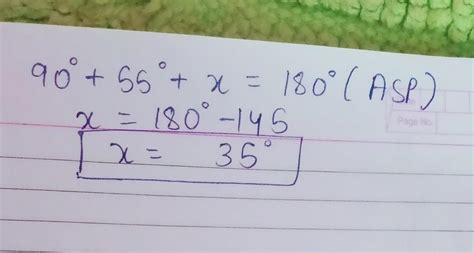 90° + 55° + x = 180° (ASP)
x = 180° - 145
x = 35°
Page No.